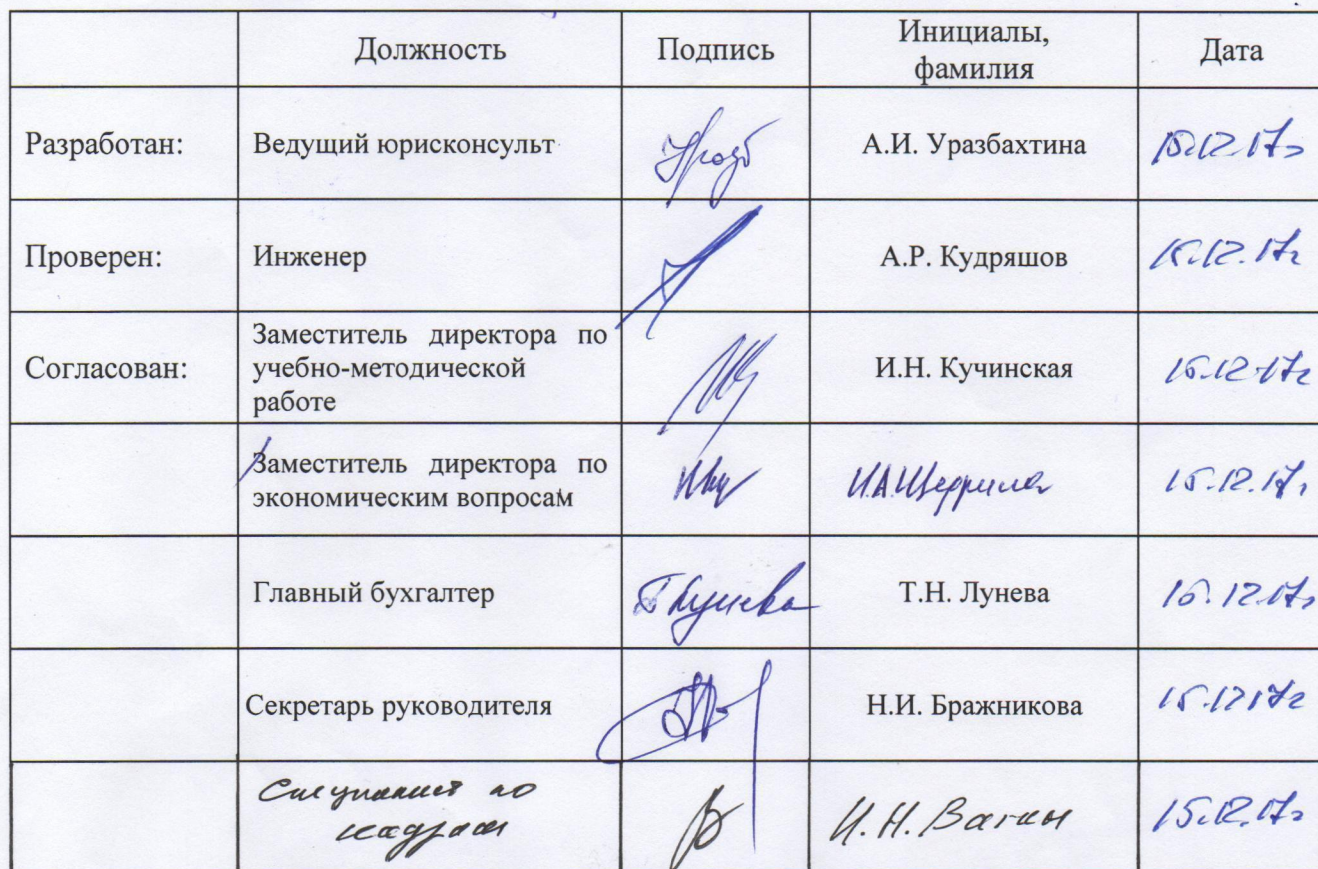 Должность Подпись Инициалы, фамилия Дата
Разработан: Ведущий юрисконсульт А.И. Уразбахтина 15.12.17г
Проверен: Инженер А.Р. Кудряшов 15.12.17г
Согласован: Заместитель директора по
учебно-методической И.Н. Кучинская 15.12.17г
работе
Заместитель директора по
экономическим вопросам И.А. 15.12.17г
Главный бухгалтер Т.Н. Лунева 15.12.17г
Секретарь руководителя Н.И. Бражникова 15.12.17г
Специалист по
кадрам И.Н. 15.12.17г